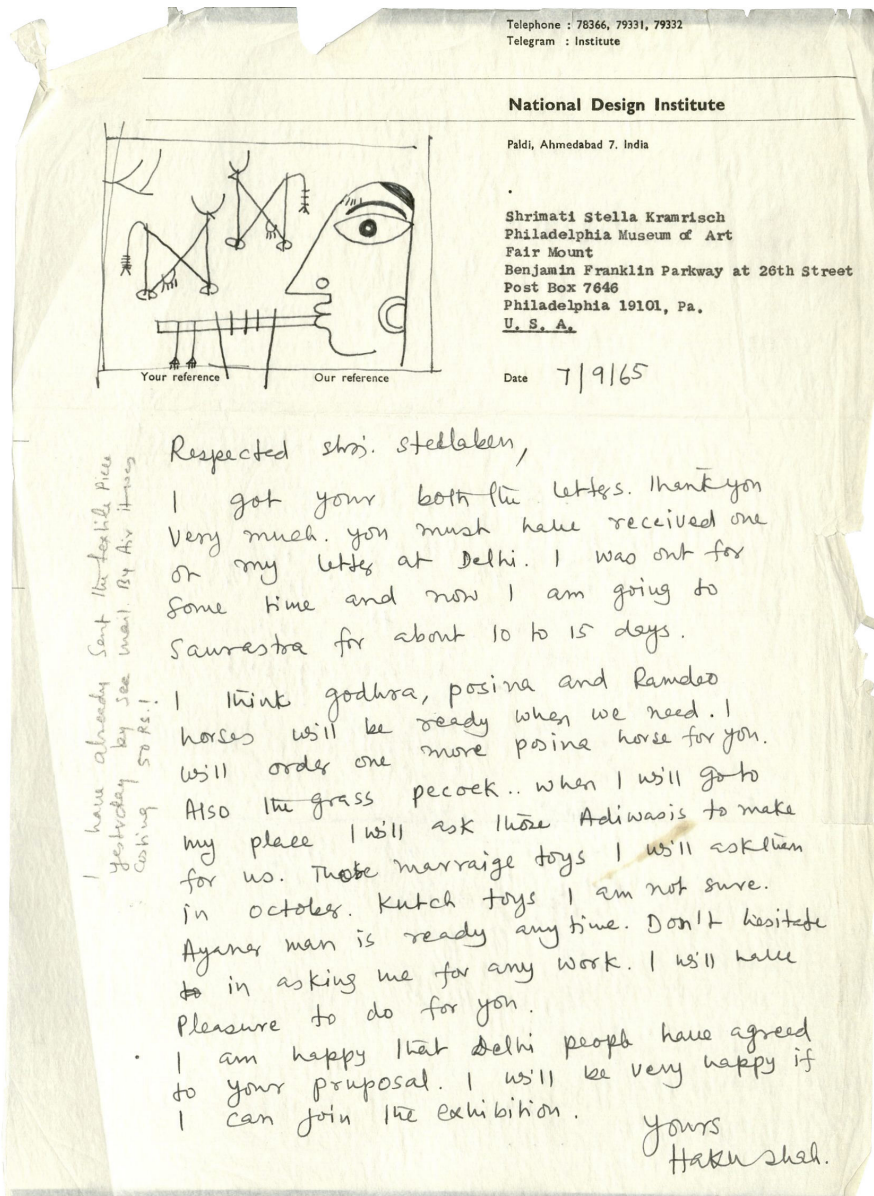 Telephone : 78366, 79331, 79332
Telegram : Institute
National Design Institute
Paldi, Ahmedabad 7. India
Shrimati Stella Kramrisch
Philadelphia Museum of Art
Fair Mount
Benjamin Franklin Parkway at 26th Street
Post Box 7646
Philadelphia 19101, Pa.
U. S. A.
Your reference
Our reference
Date 7/9/65
Respected shri. stellaben,
I got your both the letters. Thank you
very much. you must have received one
or my letter at Delhi. I was out for
some time and now I am going to
Saurastra for about 10 to 15 days.
I think godhra, posina and Ramdeo
horses will be ready when we need. I
will order one more posina horse for you.
Also the grass pecock.. when I will go to
my place I will ask those Adiwasis to make
for us. Those marraige toys I will ask them
in october. Kutch toys I am not sure.
Ayanar man is ready any time. Don't hesitate
in asking me for any work. I will have
Pleasure to do for you.
I am happy that Delhi people have agreed
to your pruposal. I will be very happy if
I can join the exhibition.
Yours
Haku shah.
I have already sent the textile piece
yesterday by see mail. By Air it was
costing 50 Rs.!